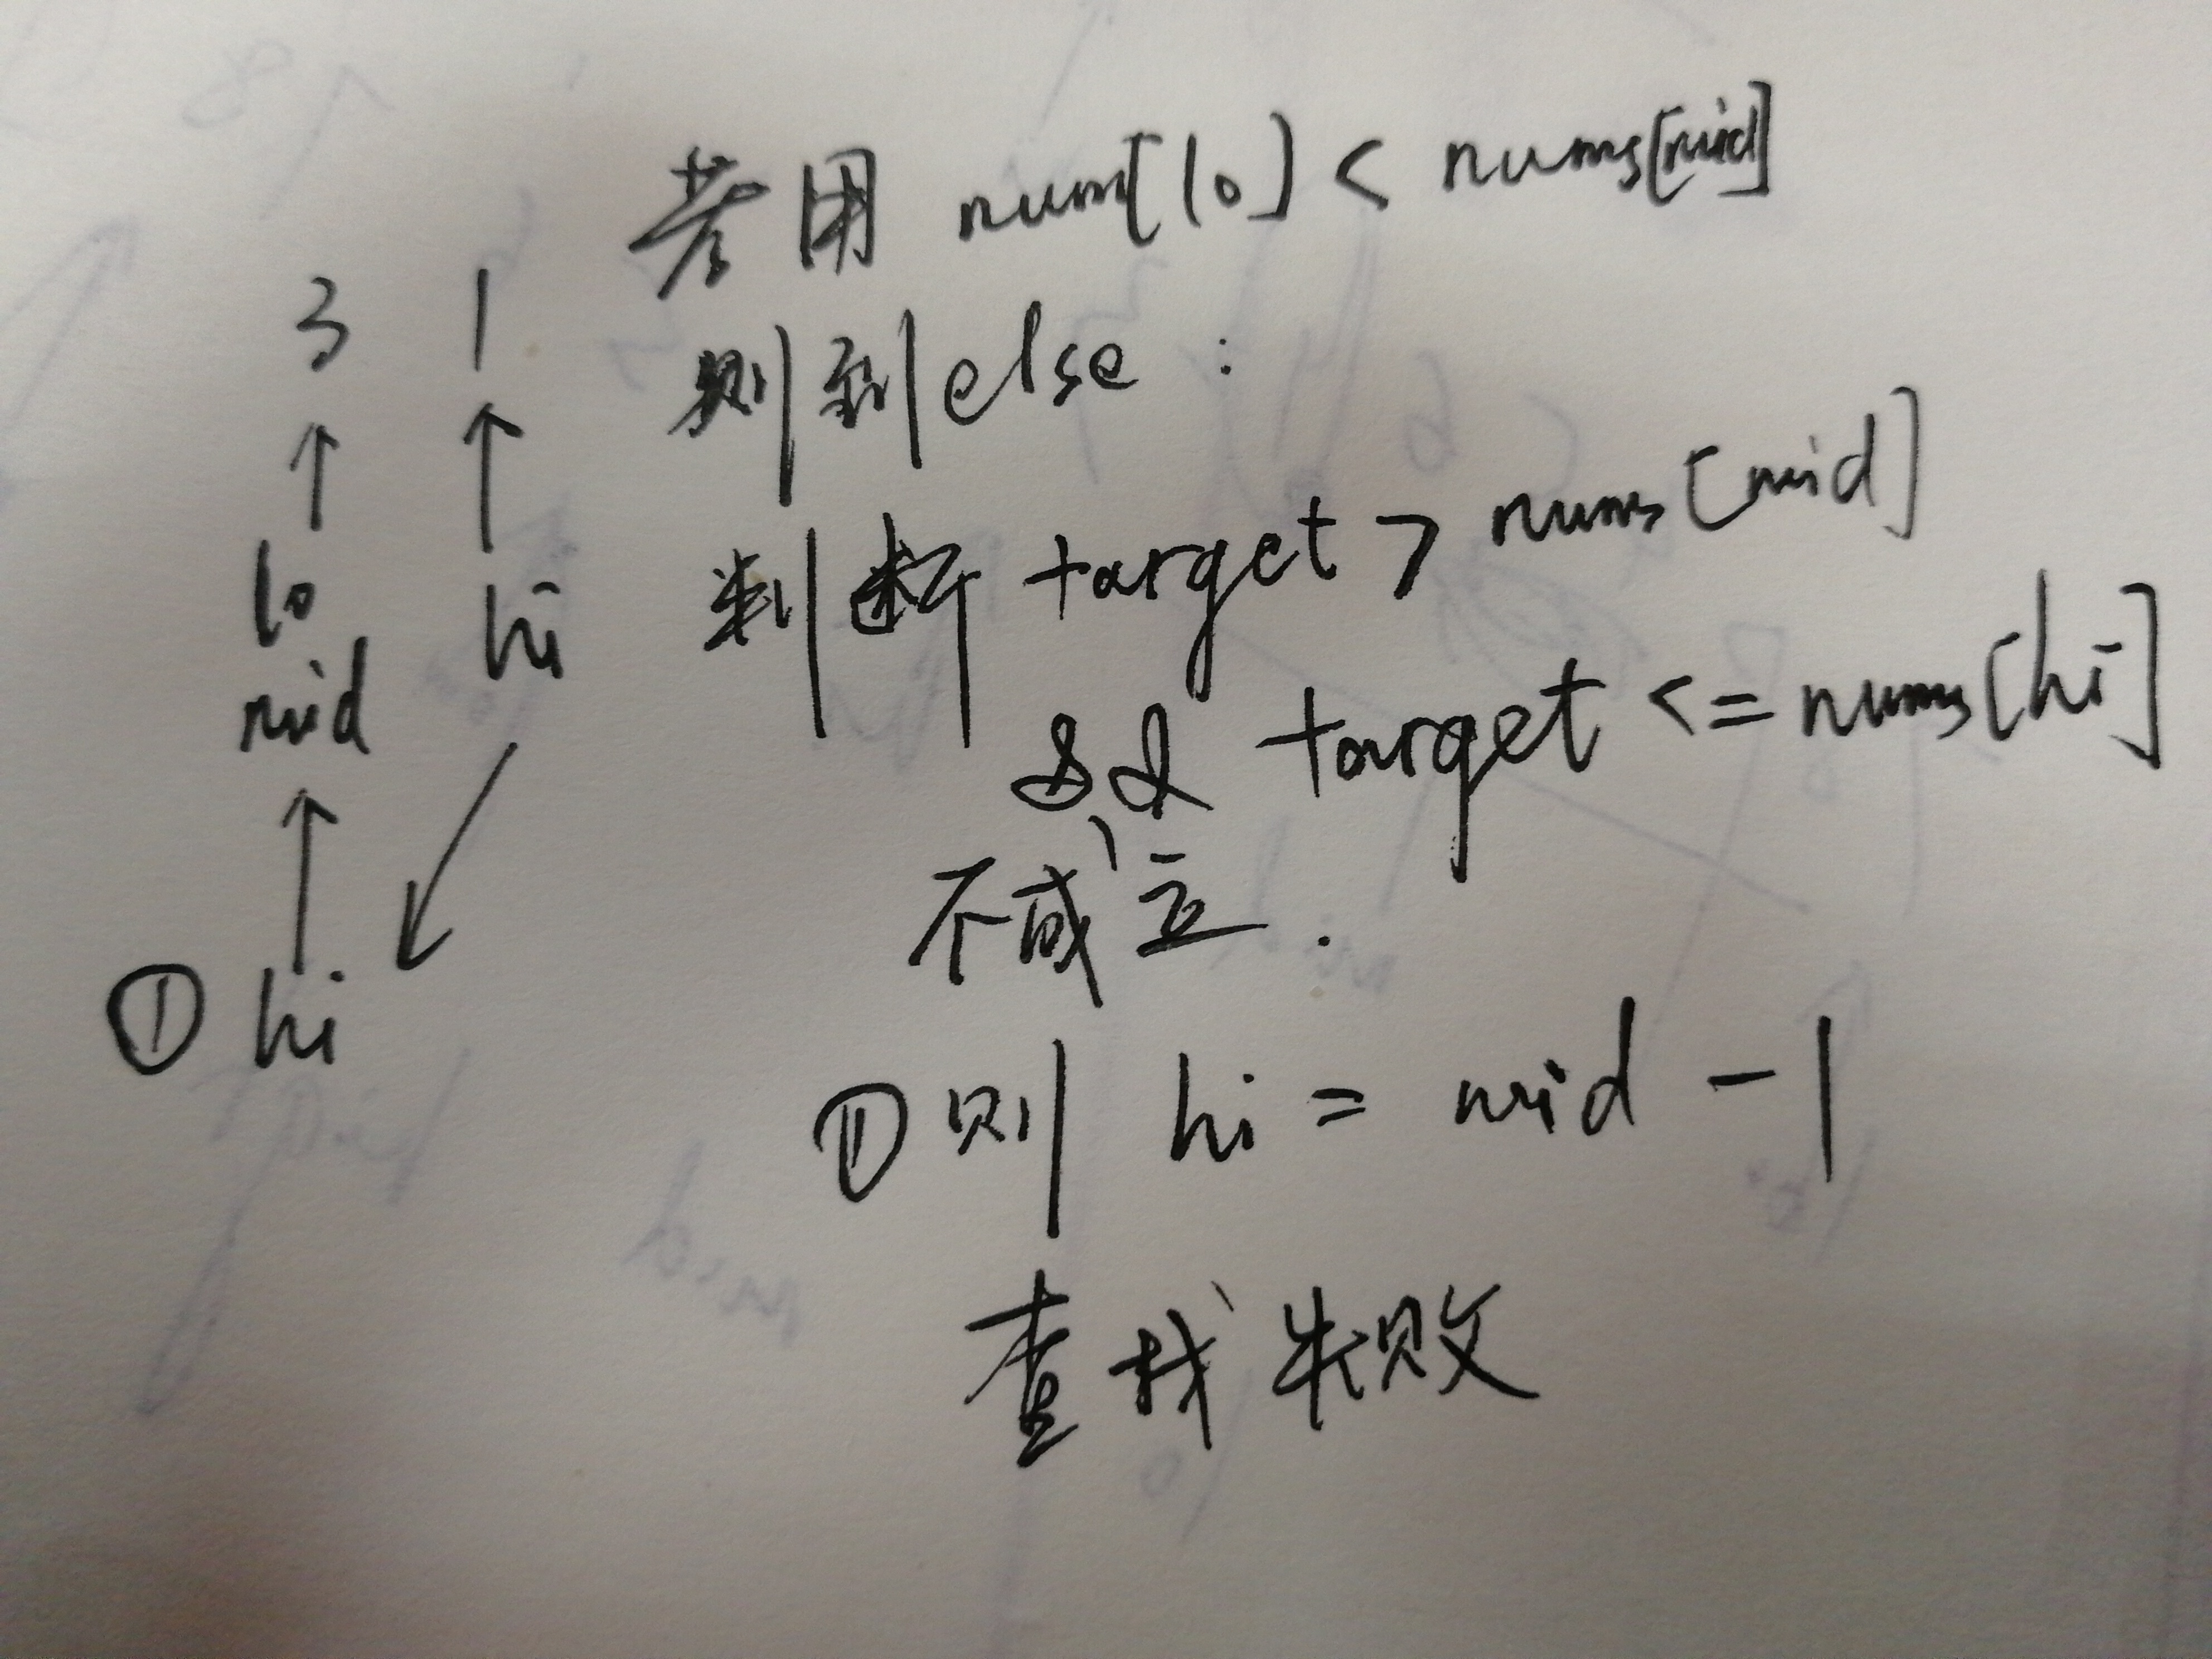 若用 num[lo] < nums[mid]
3 1
则到else :
lo hi
mid
判断 target > nums[mid]
&& target <= nums[hi]
不成立.
① hi
① 则 hi = mid - 1
查找失败